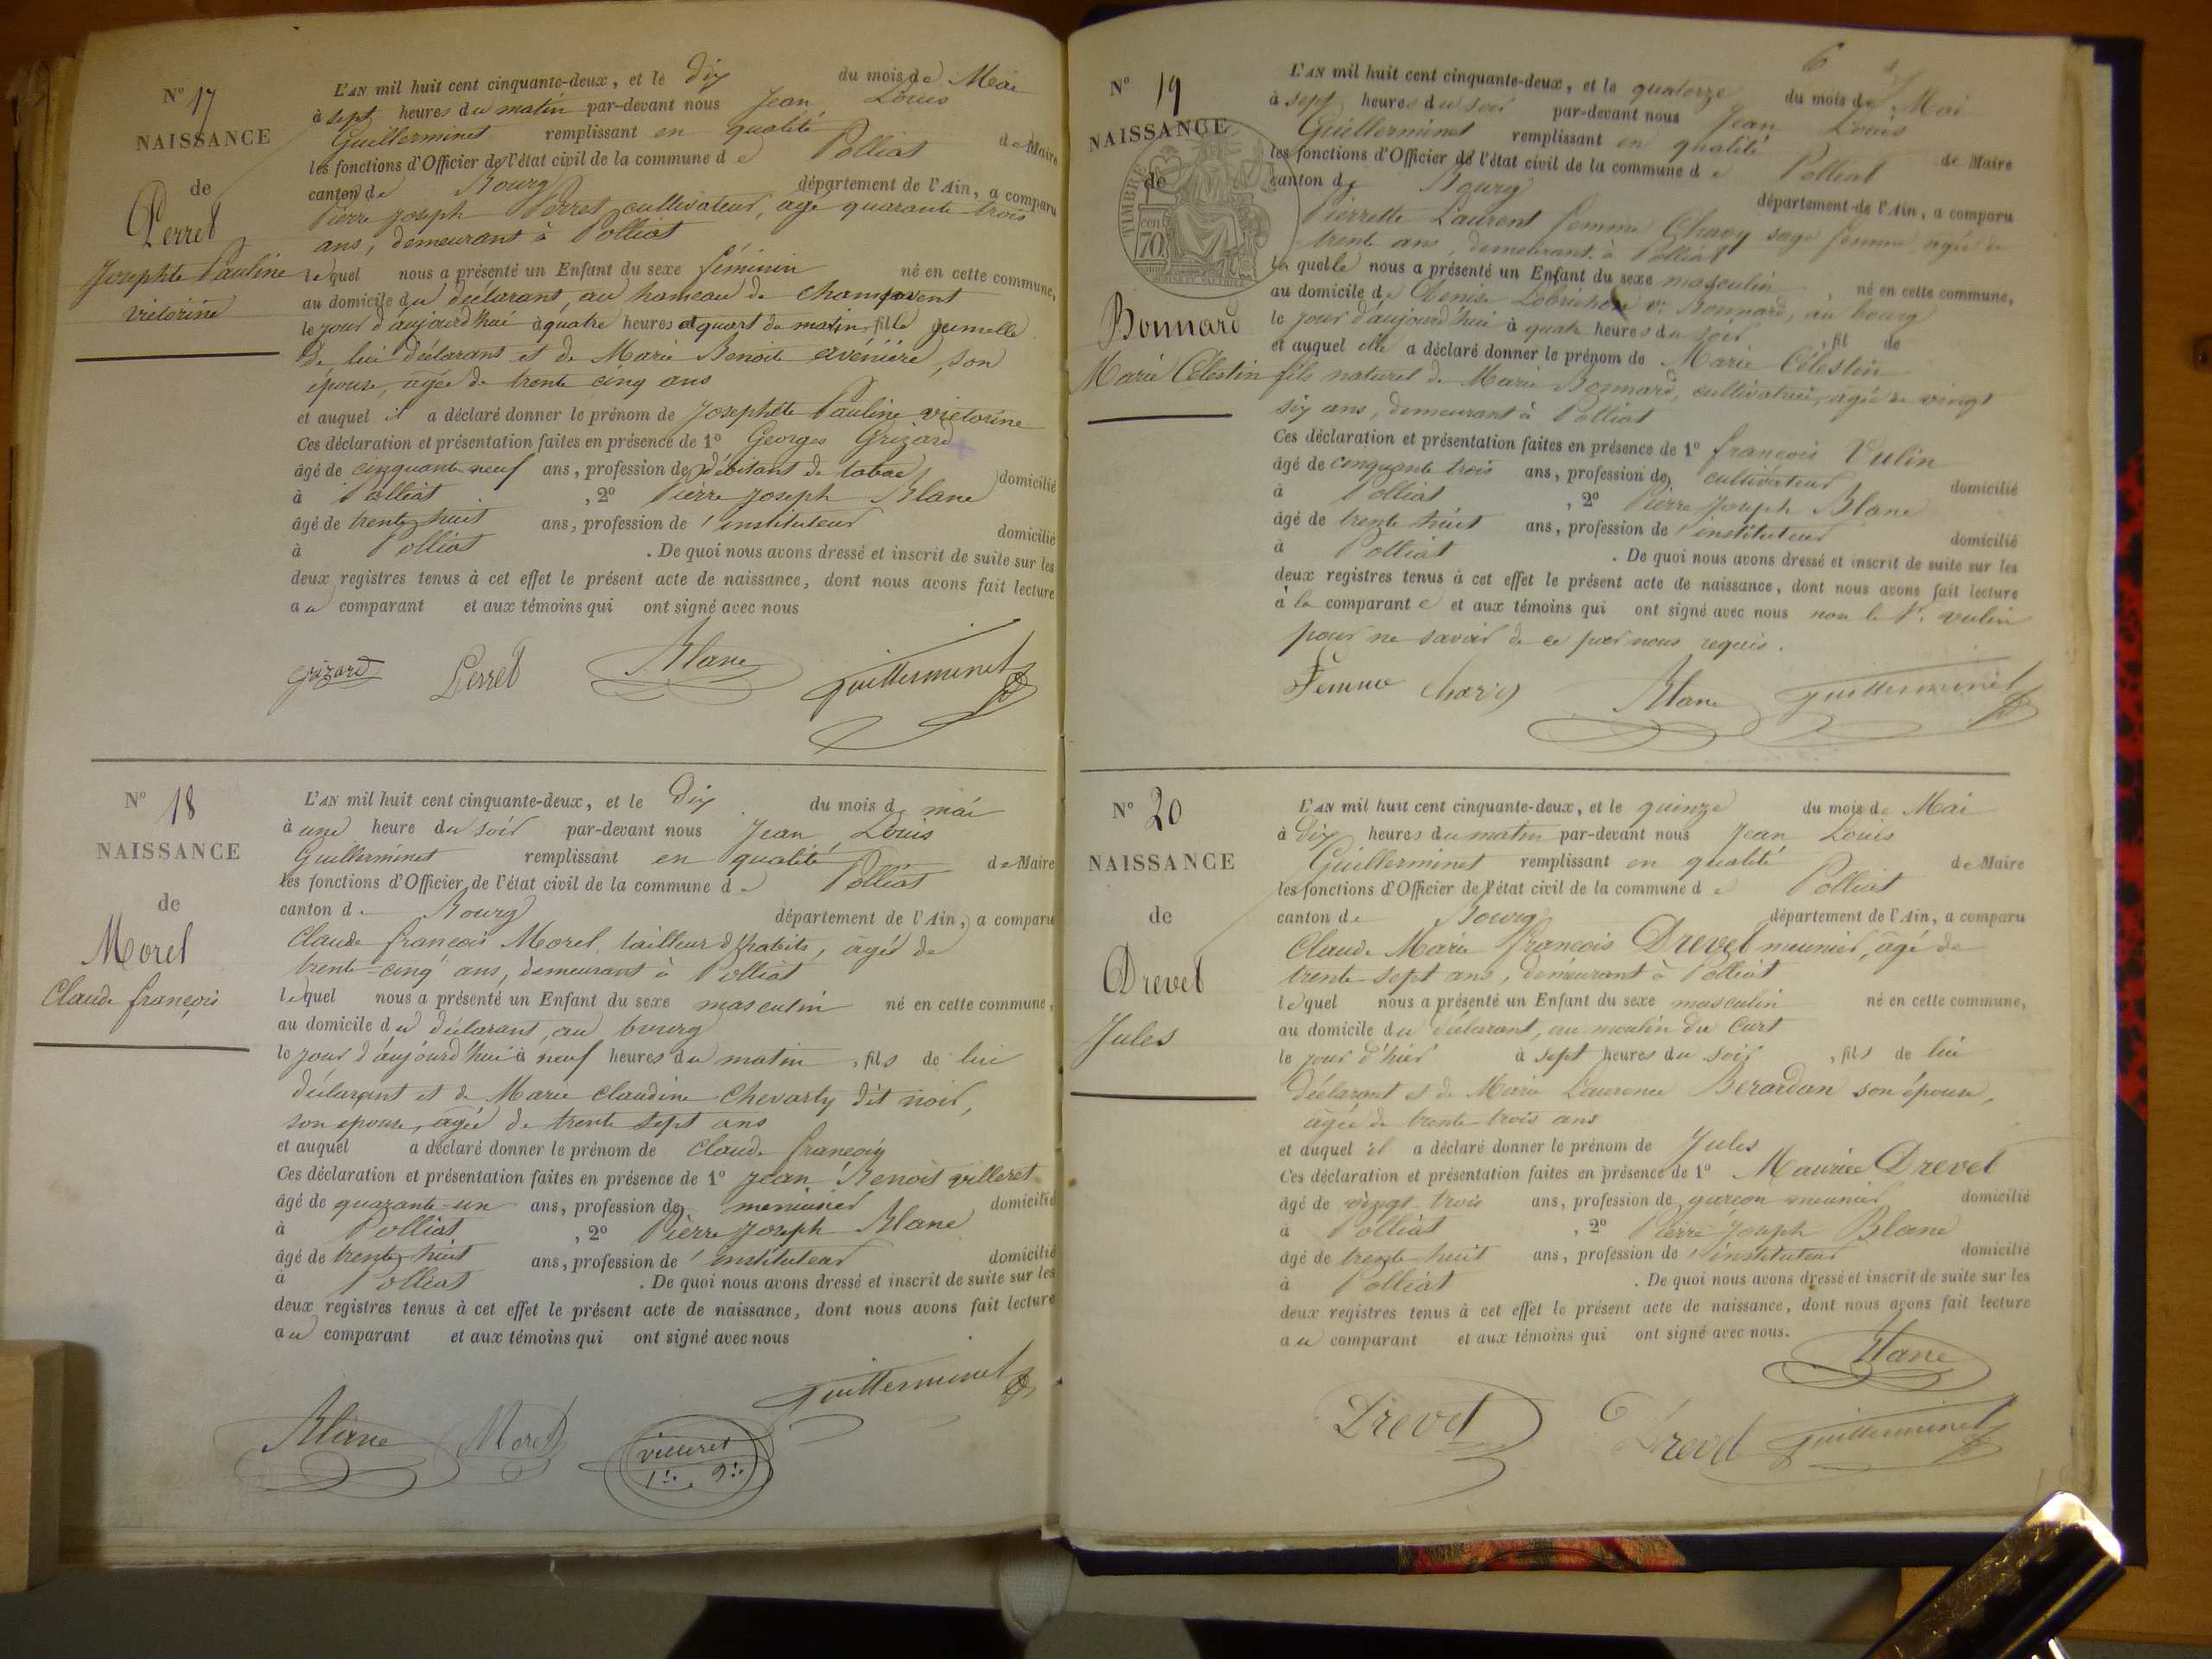 N° 17
NAISSANCE
de
Perret
Josephte Pauline
victorine
L'AN mil huit cent cinquante-deux, et le dix du mois de Mai
à sept heures du matin par-devant nous Jean Louis
Guillerminet remplissant en qualité de Maire
les fonctions d'Officier de l'état civil de la commune de Polliat
canton de Bourg département de l'Ain, a comparu
Pierre Joseph Perret cultivateur, agé quarante trois
ans, demeurant à Polliat
lequel nous a présenté un Enfant du sexe féminin né en cette commune,
au domicile du déclarant, au hameau de
le jour d'aujourd'hui à quatre heures et quart du matin, fille jumelle
de lui déclarant et de Marie Benoite avéniére, son
épouse, agée de trente cinq ans
et auquel il a déclaré donner le prénom de Josephte Pauline victorine
Ces déclaration et présentation faites en présence de 1° Georges Grizard
âgé de cinquante neuf ans, profession de débitant de tabac domicilié
à Polliat, 2° Pierre Joseph Blanc
âgé de trente huit ans, profession de instituteur domicilié
à Polliat. De quoi nous avons dressé et inscrit de suite sur les
deux registres tenus à cet effet le présent acte de naissance, dont nous avons fait lecture
au comparant et aux témoins qui ont signé avec nous
Grizard Perret Blanc Guillerminet
N° 18
NAISSANCE
de
Morel
Claude françois
L'AN mil huit cent cinquante-deux, et le dix du mois de mai
à une heure du soir par-devant nous Jean Louis
Guillerminet remplissant en qualité de Maire
les fonctions d'Officier de l'état civil de la commune de Polliat
canton de Bourg département de l'Ain, a comparu
Claude françois Morel, tailleur d'habits, agé de
trente-cinq ans, demeurant à Polliat
lequel nous a présenté un Enfant du sexe masculin né en cette commune,
au domicile du déclarant, au bourg
le jour d'aujourd'hui à neuf heures du matin, fils de lui
déclarant et de Marie Claudine Chevarly dit noir,
son épouse, agée de trente sept ans
et auquel a déclaré donner le prénom de Claude françois
Ces déclaration et présentation faites en présence de 1° Jean Benoit villeret
âgé de quarante-un ans, profession de menuisier domicilié
à Polliat, 2° Pierre Joseph Blanc
âgé de trente huit ans, profession de instituteur domicilié
à Polliat. De quoi nous avons dressé et inscrit de suite sur les
deux registres tenus à cet effet le présent acte de naissance, dont nous avons fait lecture
au comparant et aux témoins qui ont signé avec nous
Guillerminet
Blanc Morel villeret
6
N° 19
NAISSANCE
de
TIMBRE
70
Bonnard
Marie Célestin
L'AN mil huit cent cinquante-deux, et le quatorze du mois de Mai
à sept heures du soir par-devant nous Jean Louis
Guillerminet remplissant en qualité de Maire
les fonctions d'Officier de l'état civil de la commune de Polliat
canton de Bourg département de l'Ain, a comparu
Pierrette Laurent femme Chavy sage femme agée de
trente ans, demeurant à Polliat
laquelle nous a présenté un Enfant du sexe masculin, né en cette commune,
au domicile de Denise Lobrichon ve Bonnard, au bourg
le jour d'aujourd'hui à quatre heures du soir, fil de
et auquel elle a déclaré donner le prénom de Marie Célestin
fils naturel de Marie Bonnard, cultivatrice, agée de vingt
six ans, demeurant à Polliat
Ces déclaration et présentation faites en présence de 1° françois Vulin
âgé de cinquante trois ans, profession de cultivateur domicilié
à Polliat, 2° Pierre Joseph Blanc
âgé de trente huit ans, profession de instituteur domicilié
à Polliat. De quoi nous avons dressé et inscrit de suite sur les
deux registres tenus à cet effet le présent acte de naissance, dont nous avons fait lecture
à la comparante et aux témoins qui ont signé avec nous non le Sr. vulin
pour ne savoir de ce par nous requis.
Femme Chavy Blanc Guillerminet
N° 20
NAISSANCE
de
Drevet
Jules
L'AN mil huit cent cinquante-deux, et le quinze du mois de Mai
à dix heures du matin par-devant nous Jean Louis
Guillerminet remplissant en qualité de Maire
les fonctions d'Officier de l'état civil de la commune de Polliat
canton de Bourg département de l'Ain, a comparu
Claude Marie françois Drevet meunier, agé de
trente sept ans, demeurant à Polliat
lequel nous a présenté un Enfant du sexe masculin né en cette commune,
au domicile du déclarant, au moulin du Curt
le jour d'hier à sept heures du soir, fils de lui
déclarant et de Marie Laurence Berardan son épouse,
agée de trente trois ans
et auquel il a déclaré donner le prénom de Jules
Ces déclaration et présentation faites en présence de 1° Maurice Drevet
âgé de vingt-trois ans, profession de garçon meunier domicilié
à Polliat, 2° Pierre Joseph Blanc
âgé de trente huit ans, profession de instituteur domicilié
à Polliat. De quoi nous avons dressé et inscrit de suite sur les
deux registres tenus à cet effet le présent acte de naissance, dont nous avons fait lecture
au comparant et aux témoins qui ont signé avec nous.
Blanc
Drevet Drevet Guillerminet